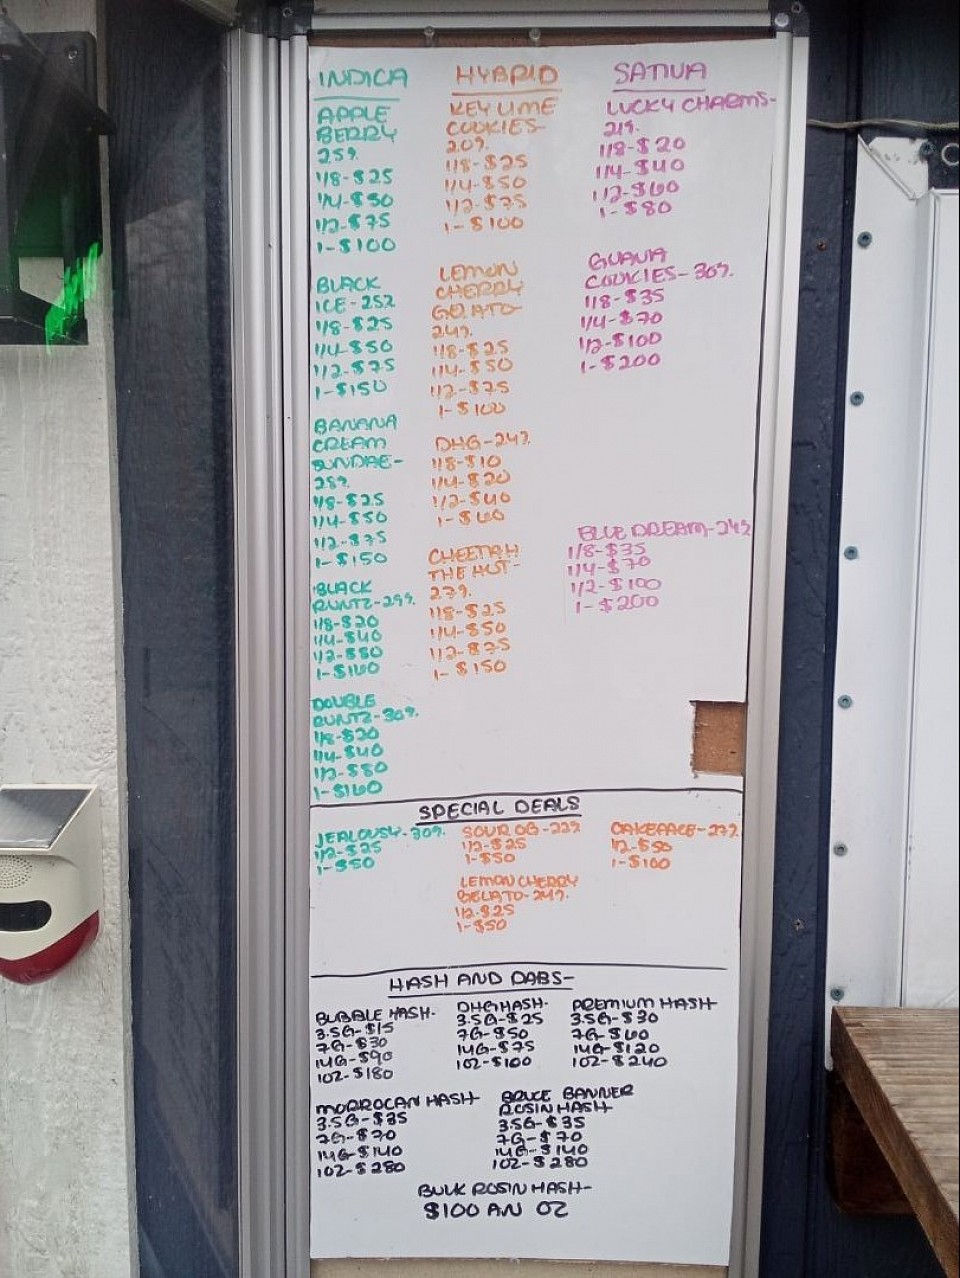 INDICA
APPLE
BERRY
25%
1/8-$25
1/4-$50
1/2-$75
1-$100
BLACK
ICE-25%
1/8-$25
1/4-$50
1/2-$75
1-$150
BANANA
CREAM
SUNDAE-
28%
1/8-$25
1/4-$50
1/2-$75
1-$150
BLACK
RUNTZ-29%
1/8-$20
1/4-$40
1/2-$80
1-$160
DOUBLE
RUNTZ-30%
1/8-$20
1/4-$40
1/2-$80
1-$160
HYBRID
KEY LIME
COOKIES-
20%
1/8-$25
1/4-$50
1/2-$75
1-$100
LEMON
CHERRY
GELATO-
24%
1/8-$25
1/4-$50
1/2-$75
1-$100
DHG-24%
1/8-$10
1/4-$20
1/2-$40
1-$60
CHEETAH
THE HUT-
27%
1/8-$25
1/4-$50
1/2-$75
1-$150
SATIVA
LUCKY CHARMS-
21%
1/8-$20
1/4-$40
1/2-$60
1-$80
GUAVA
COOKIES-30%
1/8-$35
1/4-$70
1/2-$100
1-$200
BLUE DREAM-24%
1/8-$35
1/4-$70
1/2-$100
1-$200
SPECIAL DEALS
JEALOUSY-30%
1/2-$25
1-$50
SOUR OG-22%
1/2-$25
1-$50
LEMON CHERRY
GELATO-24%
1/2-$25
1-$50
CAKEFACE-27%
1/2-$50
1-$100
HASH AND DABS-
BUBBLE HASH-
3.5G-$15
7G-$30
14G-$90
1OZ-$180
DHG HASH-
3.5G-$25
7G-$50
14G-$75
1OZ-$100
PREMIUM HASH
3.5G-$30
7G-$60
14G-$120
1OZ-$240
MORROCAN HASH
3.5G-$35
7G-$70
14G-$140
1OZ-$280
BRUCE BANNER
ROSIN HASH
3.5G-$35
7G-$70
14G-$140
1OZ-$280
BULK ROSIN HASH-
$100 AN OZ